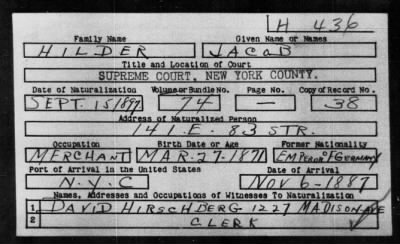 H 436
Family Name Given Name or Names
HILDER JACOB
Title and Location of Court
SUPREME COURT, NEW YORK COUNTY.
Date of Naturalization Volume or Bundle No. Page No. Copy of Record No.
SEPT. 15/1897 74 — 38
Address of Naturalized Person
141. E. 83 STR.
Occupation Birth Date or Age Former Nationality
MERCHANT MAR. 27-1871 EMPEROR OF GERMANY
Port of Arrival in the United States Date of Arrival
N. Y. C NOV 6-1887
Names, Addresses and Occupations of Witnesses To Naturalization
1 DAVID HIRSCHBERG 1227 MADISON AVE
2 CLERK